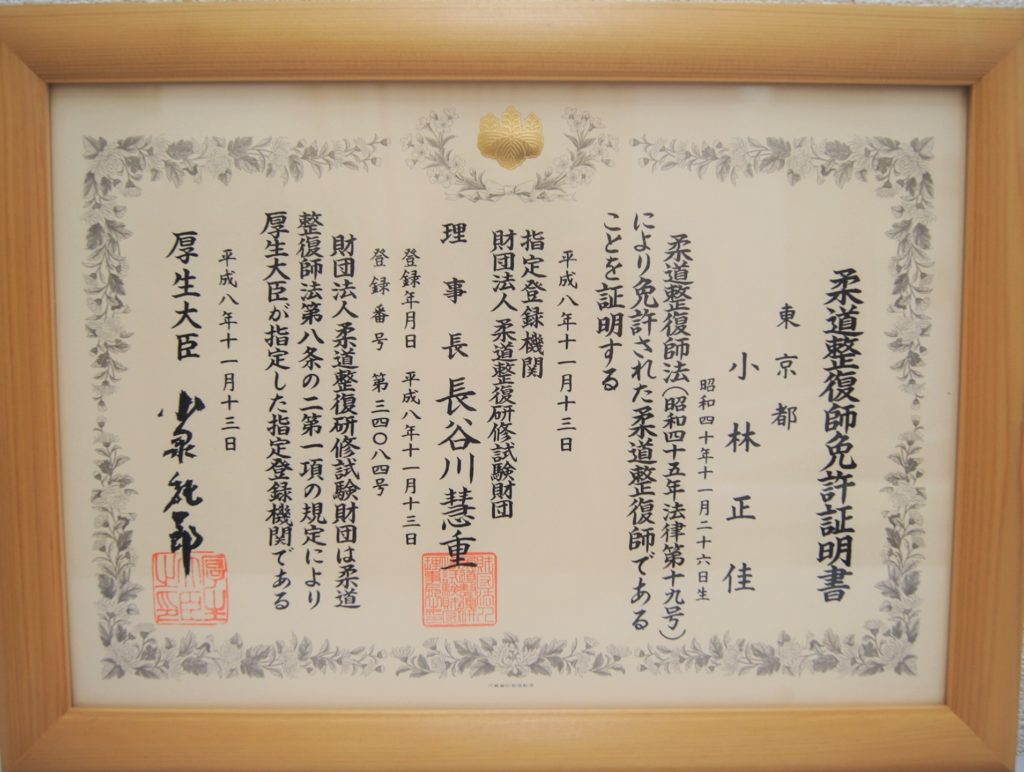 柔道整復師免許証明書
東京都
小林正佳
昭和四十年十一月二十六日生
柔道整復師法(昭和四十五年法律第十九号)
により免許された柔道整復師である
ことを証明する
平成八年十一月十三日
指定登録機関
財団法人 柔道整復研修試験財団
理事長 長谷川慧重
登録年月日 平成八年十一月十三日
登録番号 第三四〇八四号
財団法人柔道整復研修試験財団は柔道
整復師法第八条の二第一項の規定により
厚生大臣が指定した指定登録機関である
平成八年十一月十三日
厚生大臣 小泉純一郎